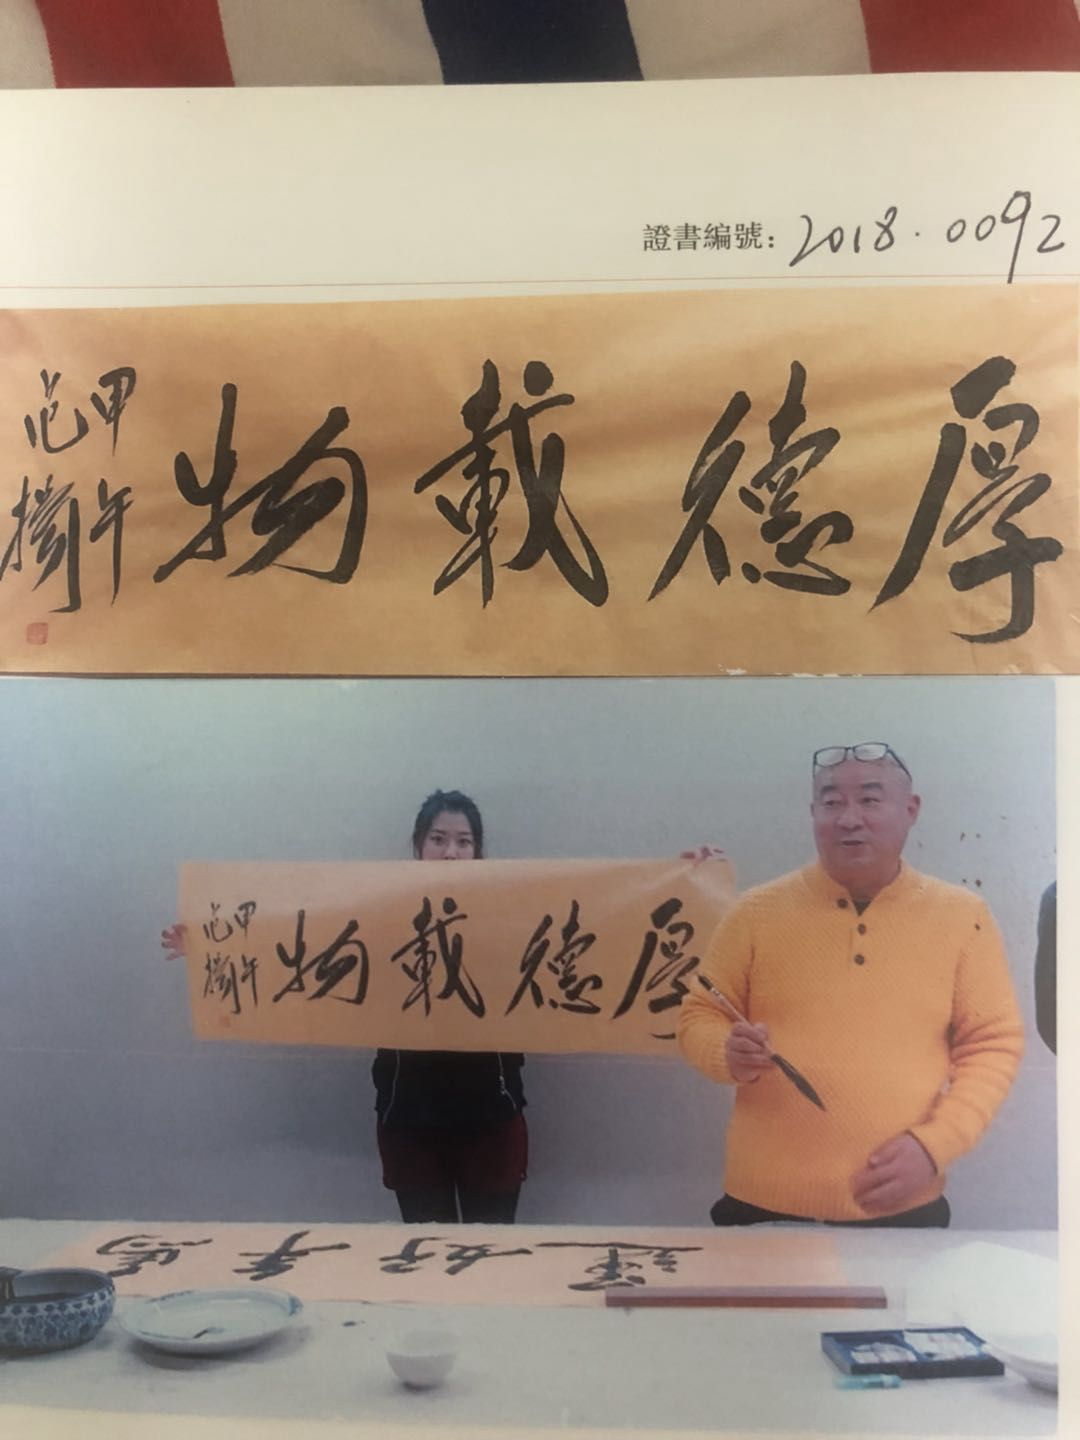 證書編號：2018.0092
厚德載物
甲午
范揚
厚德載物
甲午
范揚
馬年好運